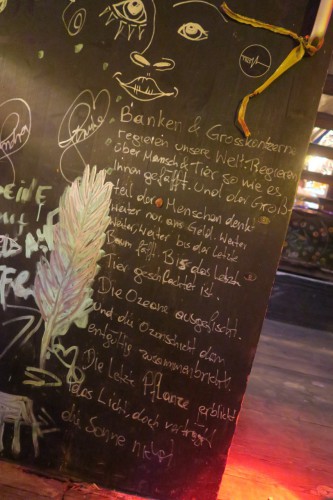 Banker & Grosskonzerne
regieren unsere Welt. Regieren
über Mensch & Tier so wie es
ihnen gefällt. Und der Groß-
teil der Menschen denkt
weiter nur ans Geld. Weiter
weiter, weiter bis der letzte
Baum fällt. Bis das letzte
Tier geschlachtet ist.
Die Ozeane ausgefischt.
Und die Ozonschicht dann
entgültig zusammenbricht.
Die letzte Pflanze erblickt
das Licht, doch
die Sonne nicht